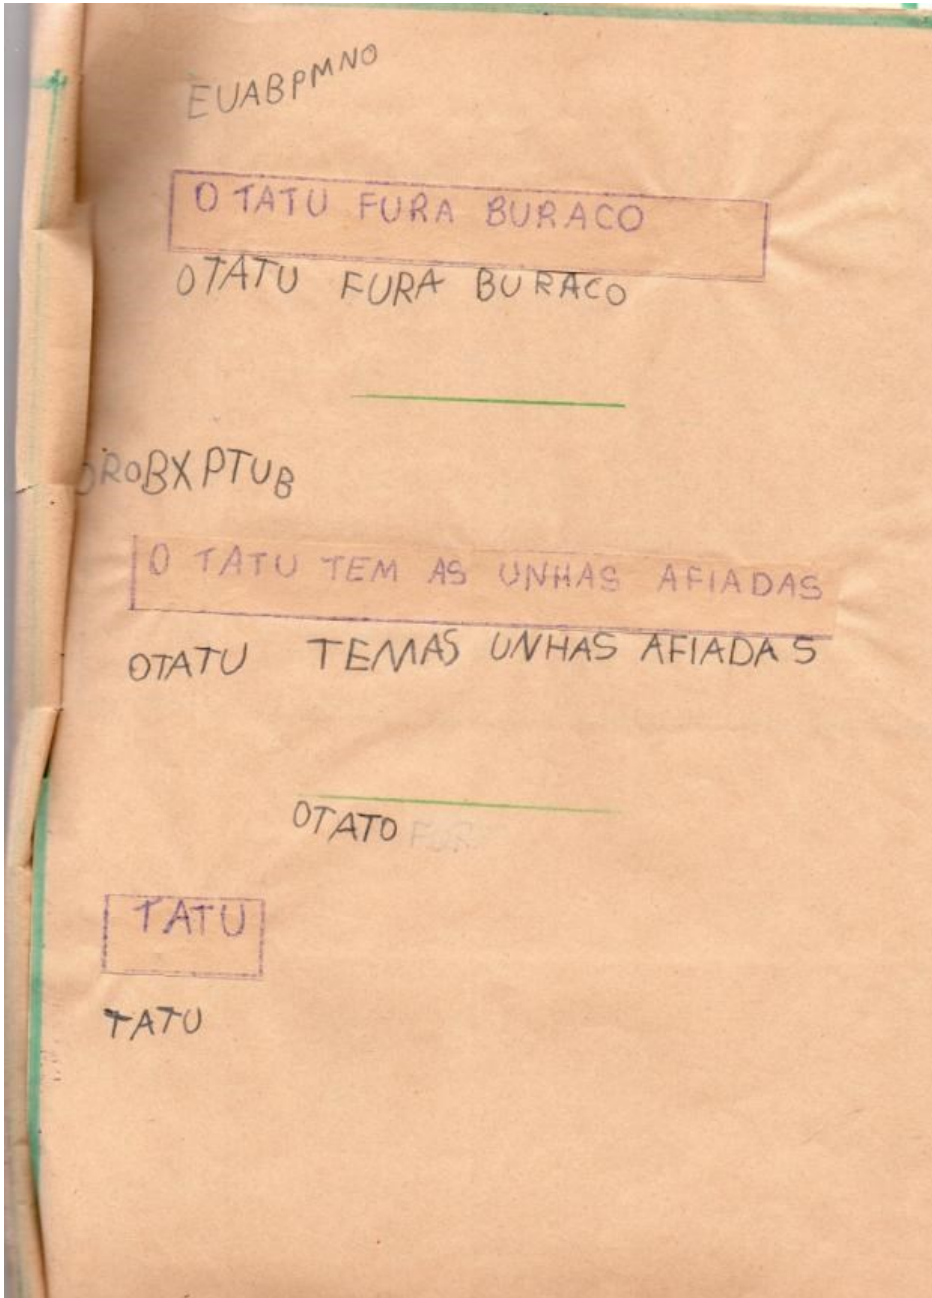 EUABPMNO
O TATU FURA BURACO
OTATU FURA BURACO
OROBXPTUB
O TATU TEM AS UNHAS AFIADAS
OTATU TEMAS UNHAS AFIADAS
OTATO
TATU
TATU